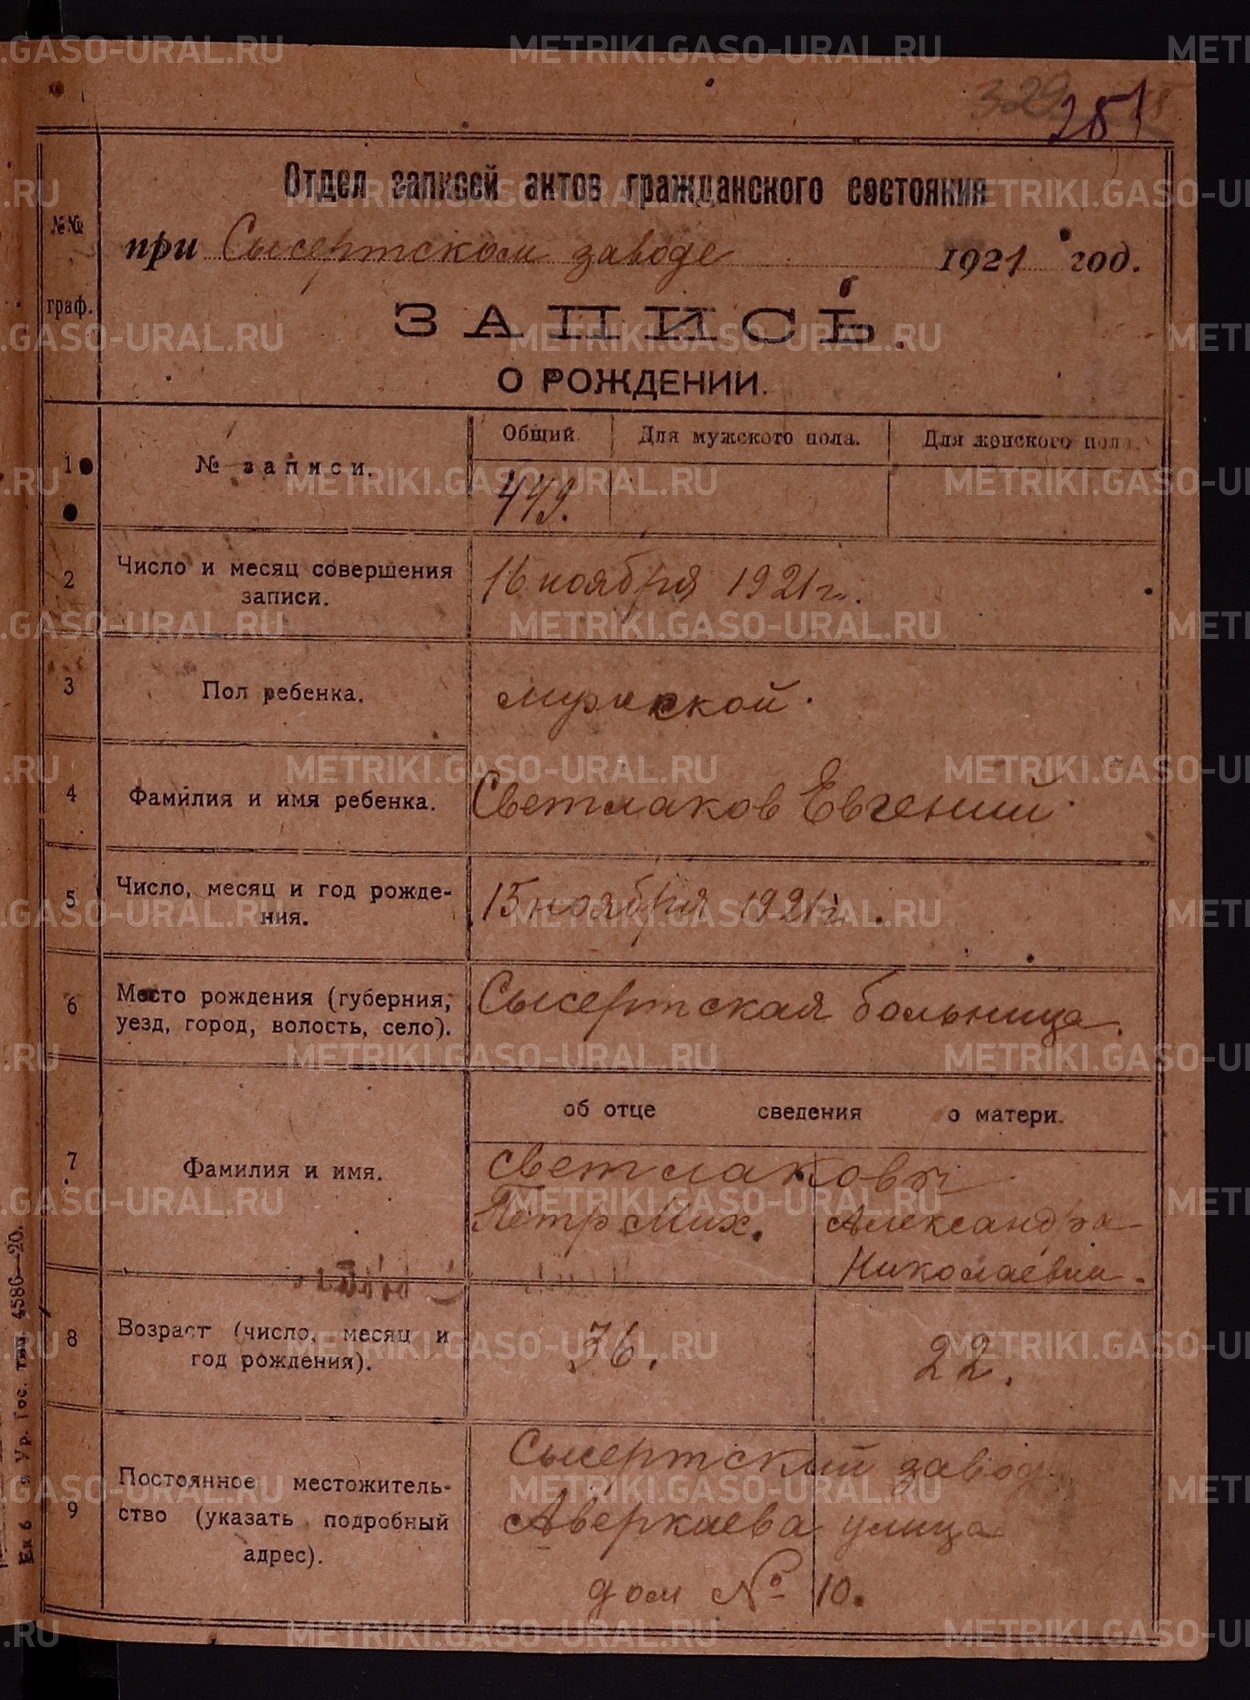 METRIKI.GASO-URAL.RU
329
281
Отдел записей актов гражданского состояния
№№ граф.
при Сысертском заводе 1921 год.
ЗАПИСЬ.
О РОЖДЕНИИ.
1
№ записи.
Общий Для мужского пола. Для женского пола.
449.
2
Число и месяц совершения
записи.
16 ноября 1921 г.
3
Пол ребенка.
мужской.
4
Фамилия и имя ребенка.
Светлаков Евгений.
5
Число, месяц и год рожде-
ния.
15 ноября 1921 г.
6
Место рождения (губерния,
уезд, город, волость, село).
Сысертская больница.
об отце сведения о матери.
7
Фамилия и имя.
Светлаковы
Петр Мих. Александра
Николаевна.
8
Возраст (число, месяц и
год рождения).
36. 22.
9
Постоянное местожитель-
ство (указать подробный
адрес).
Сысертский завод
Аверкиева улица
дом № 10.
Ур. Гос. тип. 4586—20.